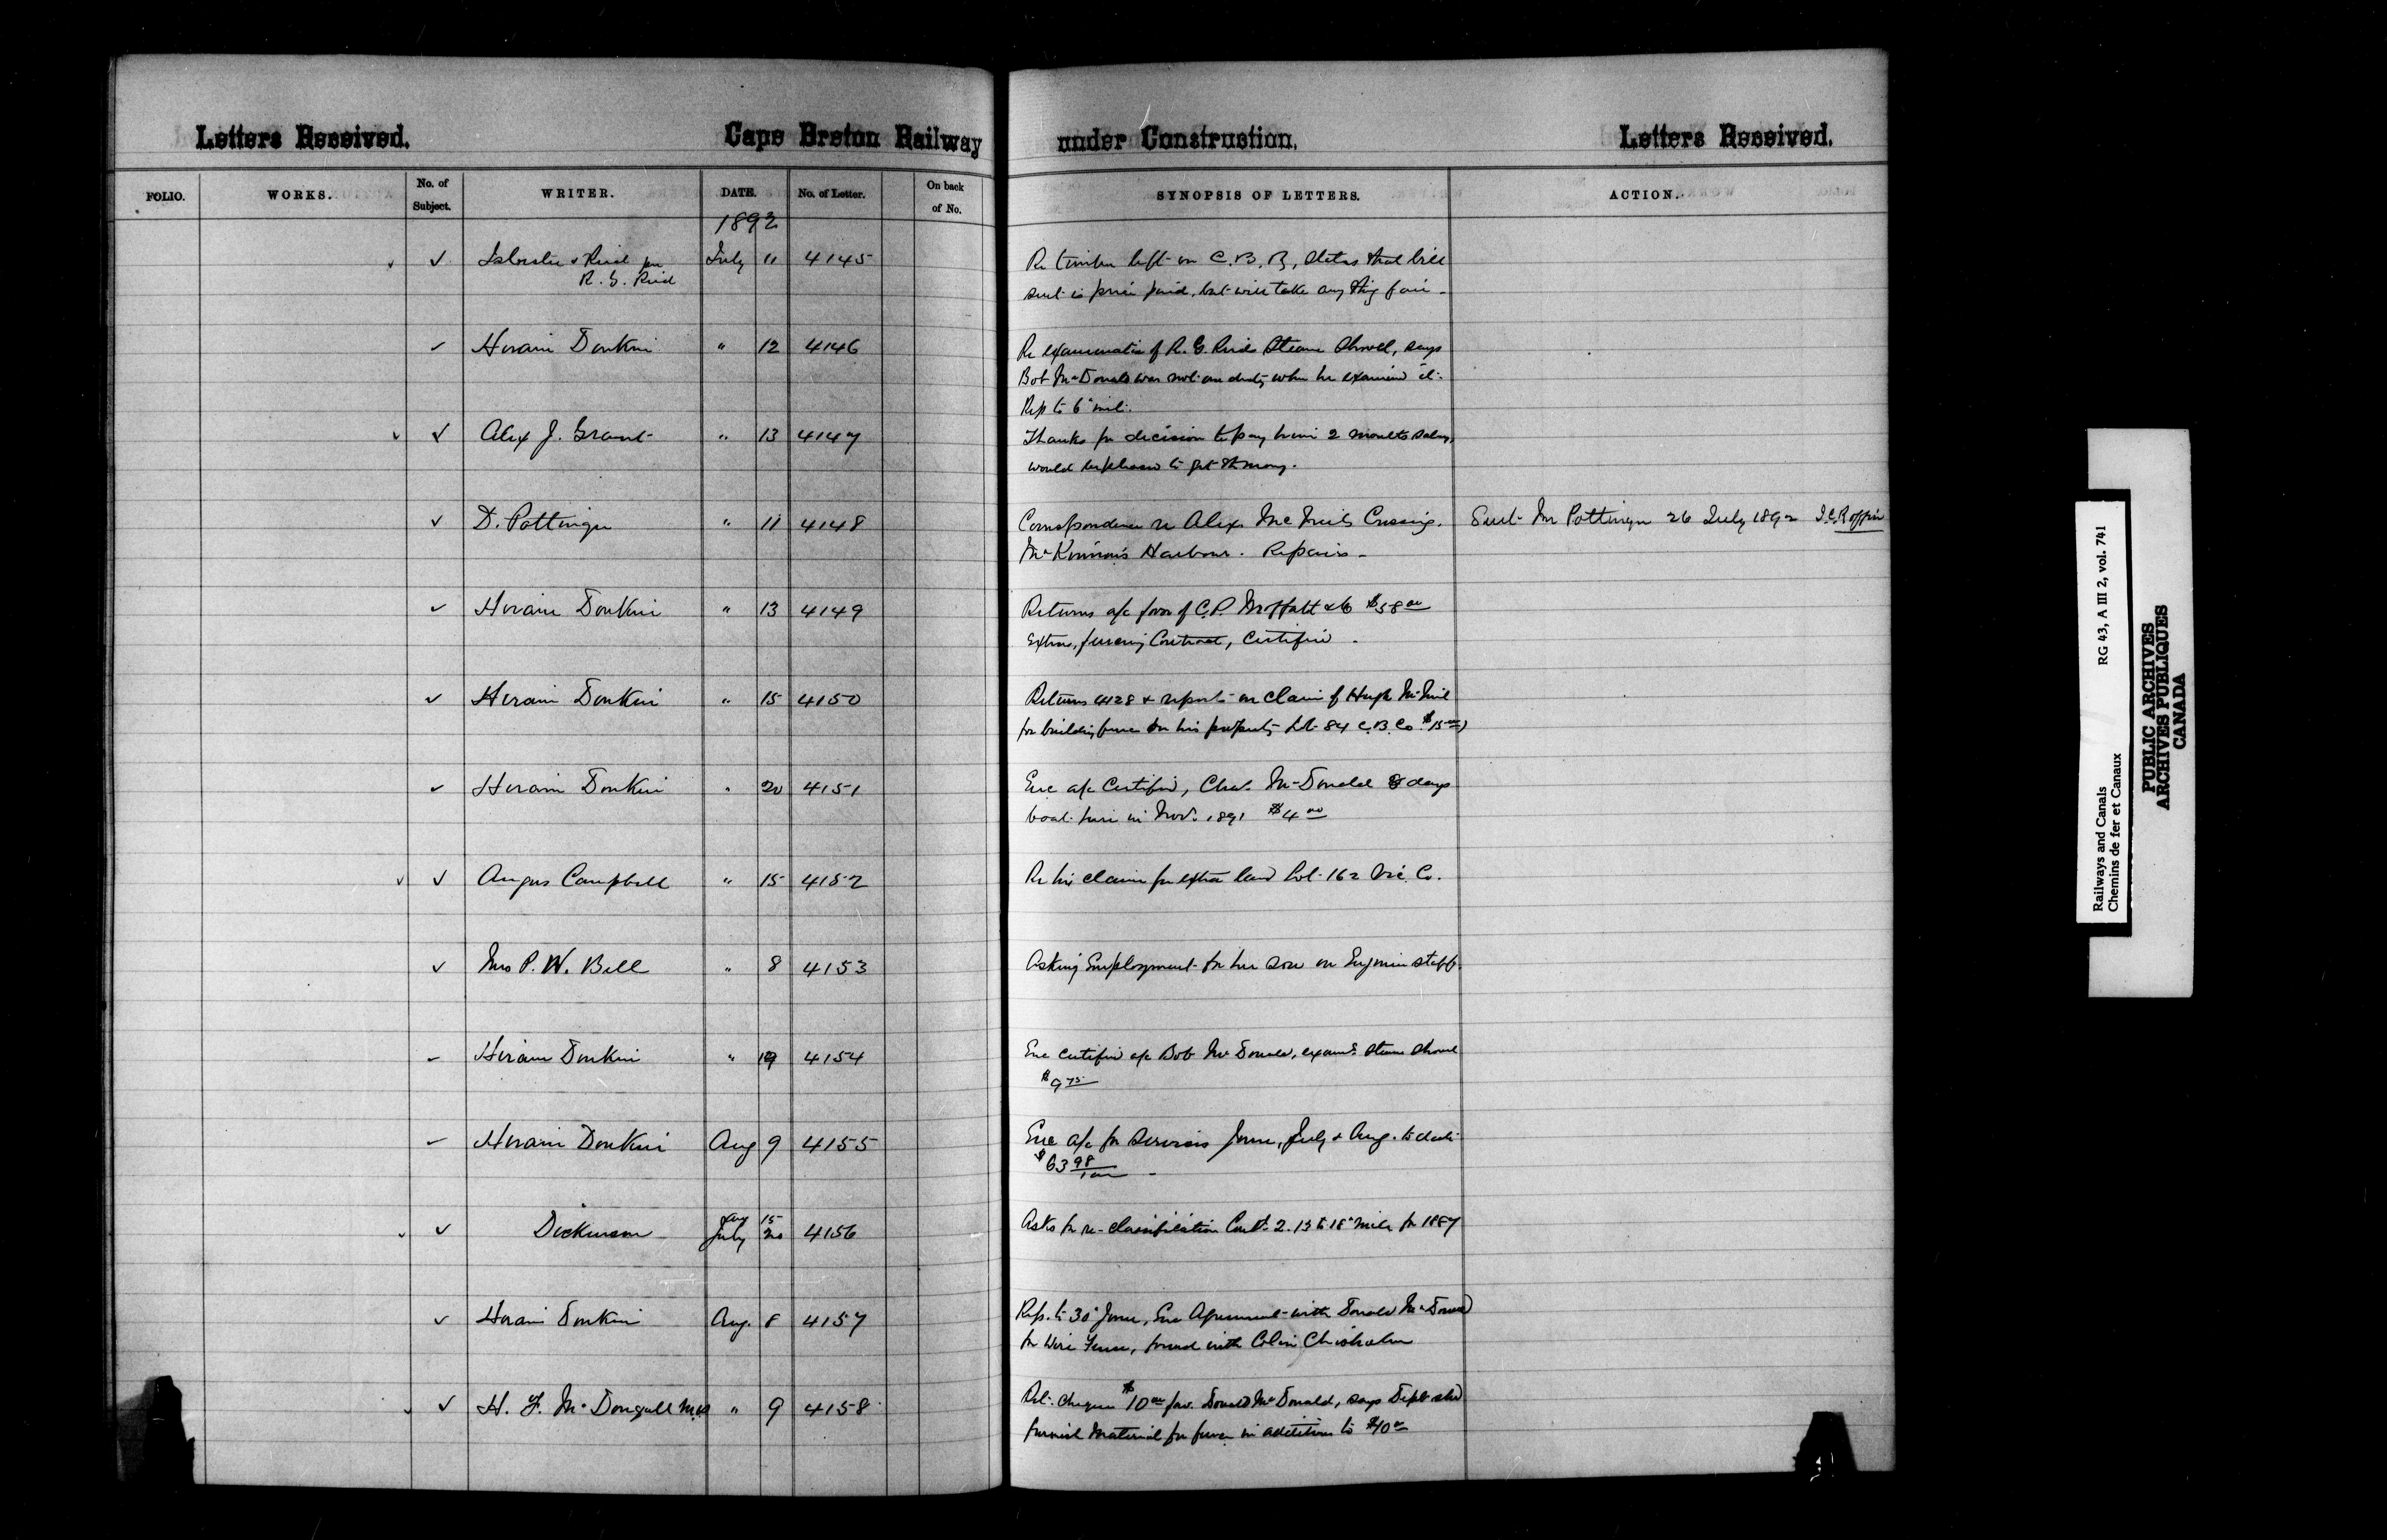 Letters Received.
Cape Breton Railway
under Construction.
Letters Received.
FOLIO. WORKS. No. of Subject. WRITER. DATE. No. of Letter. On back of No. SYNOPSIS OF LETTERS. ACTION.
1892
✓ ✓ Isbester & Reid per July 11 4145 Re timber left on C.B.R, states that bill
R. G. Reid sent is price paid, but will take any thing fair -
✓ Hiram Donkin " 12 4146 Re examination of R. G. Reids Steam Shovel, says
Bob McDonald was not on duty when he examined it.
Rep to 6" inst.
✓ ✓ Alex J. Grant " 13 4147 Thanks for decision to pay him 2 months salary,
would be pleased to get the money.
✓ D. Pottinger " 11 4148 Correspondence re Alex. McNeils Crossing. Sent Mr Pottinger 26 July 1892 I.C.R office
McKinnon's Harbour. Repairs -
✓ Hiram Donkin " 13 4149 Returns a/c favor of C.P. Moffatt & Co $58 00
Extra, fencing Contract, Certified.
✓ Hiram Donkin " 15 4150 Returns 4128 & reports on claim of Hugh McNeil
for building fence on his property Lot 84 C.B. Co. $15 00
✓ Hiram Donkin " 20 4151 Enc a/c Certified, Chas. McDonald 8 days
boat hire in Nov. 1891 $4 00
✓ ✓ Angus Campbell " 15 4152 Re his claim for extra land Lot 162 Vic. Co.
✓ Mrs P. W. Bell " 8 4153 Asking Employment for her son on Engineer staff.
✓ Hiram Donkin " 19 4154 Enc certified a/c Bob McDonald, examd. steam shovel
$9 75
✓ Hiram Donkin Aug 9 4155 Enc a/c for services June, July & Aug. to date
$63 98/100 -
Aug 15
✓ ✓ Dickinson July 20 4156 Asks for re-classification Cont. 2. 13 to 18" mile for 1887
✓ Hiram Donkin Aug. 8 4157 Rep. to 30" June, Enc Agreement with Donald McDonald
for Wire Fence, found with Colin Chisholm
✓ ✓ H. F. McDougall M.P. " 9 4158 Ret. cheque $10 00 fav. Donald McDonald, says Dept shd
furnish Material for fence in addition to $40 00
Railways and Canals RG 43, A III 2, vol. 741
Chemins de fer et Canaux
PUBLIC ARCHIVES
ARCHIVES PUBLIQUES
CANADA